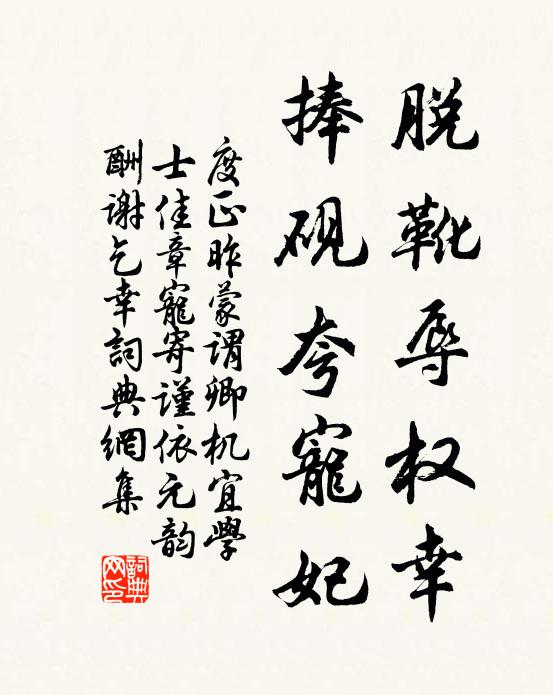 脱靴辱权幸
捧砚夸寵妃
度正昨蒙谓卿机宜學
士佳章寵寄谨依元韵
酬谢乞幸詞典網集
詞典网印